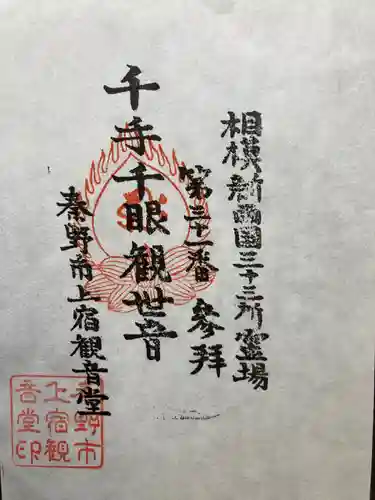 相模新西国三十三所霊場
第三十一番 參拜
千手千眼観世音
秦野市上宿観音堂
秦野市
上宿観
音堂印